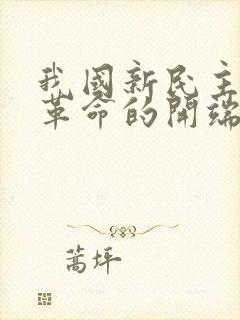 我國新民主
革命的開端
蒿坪